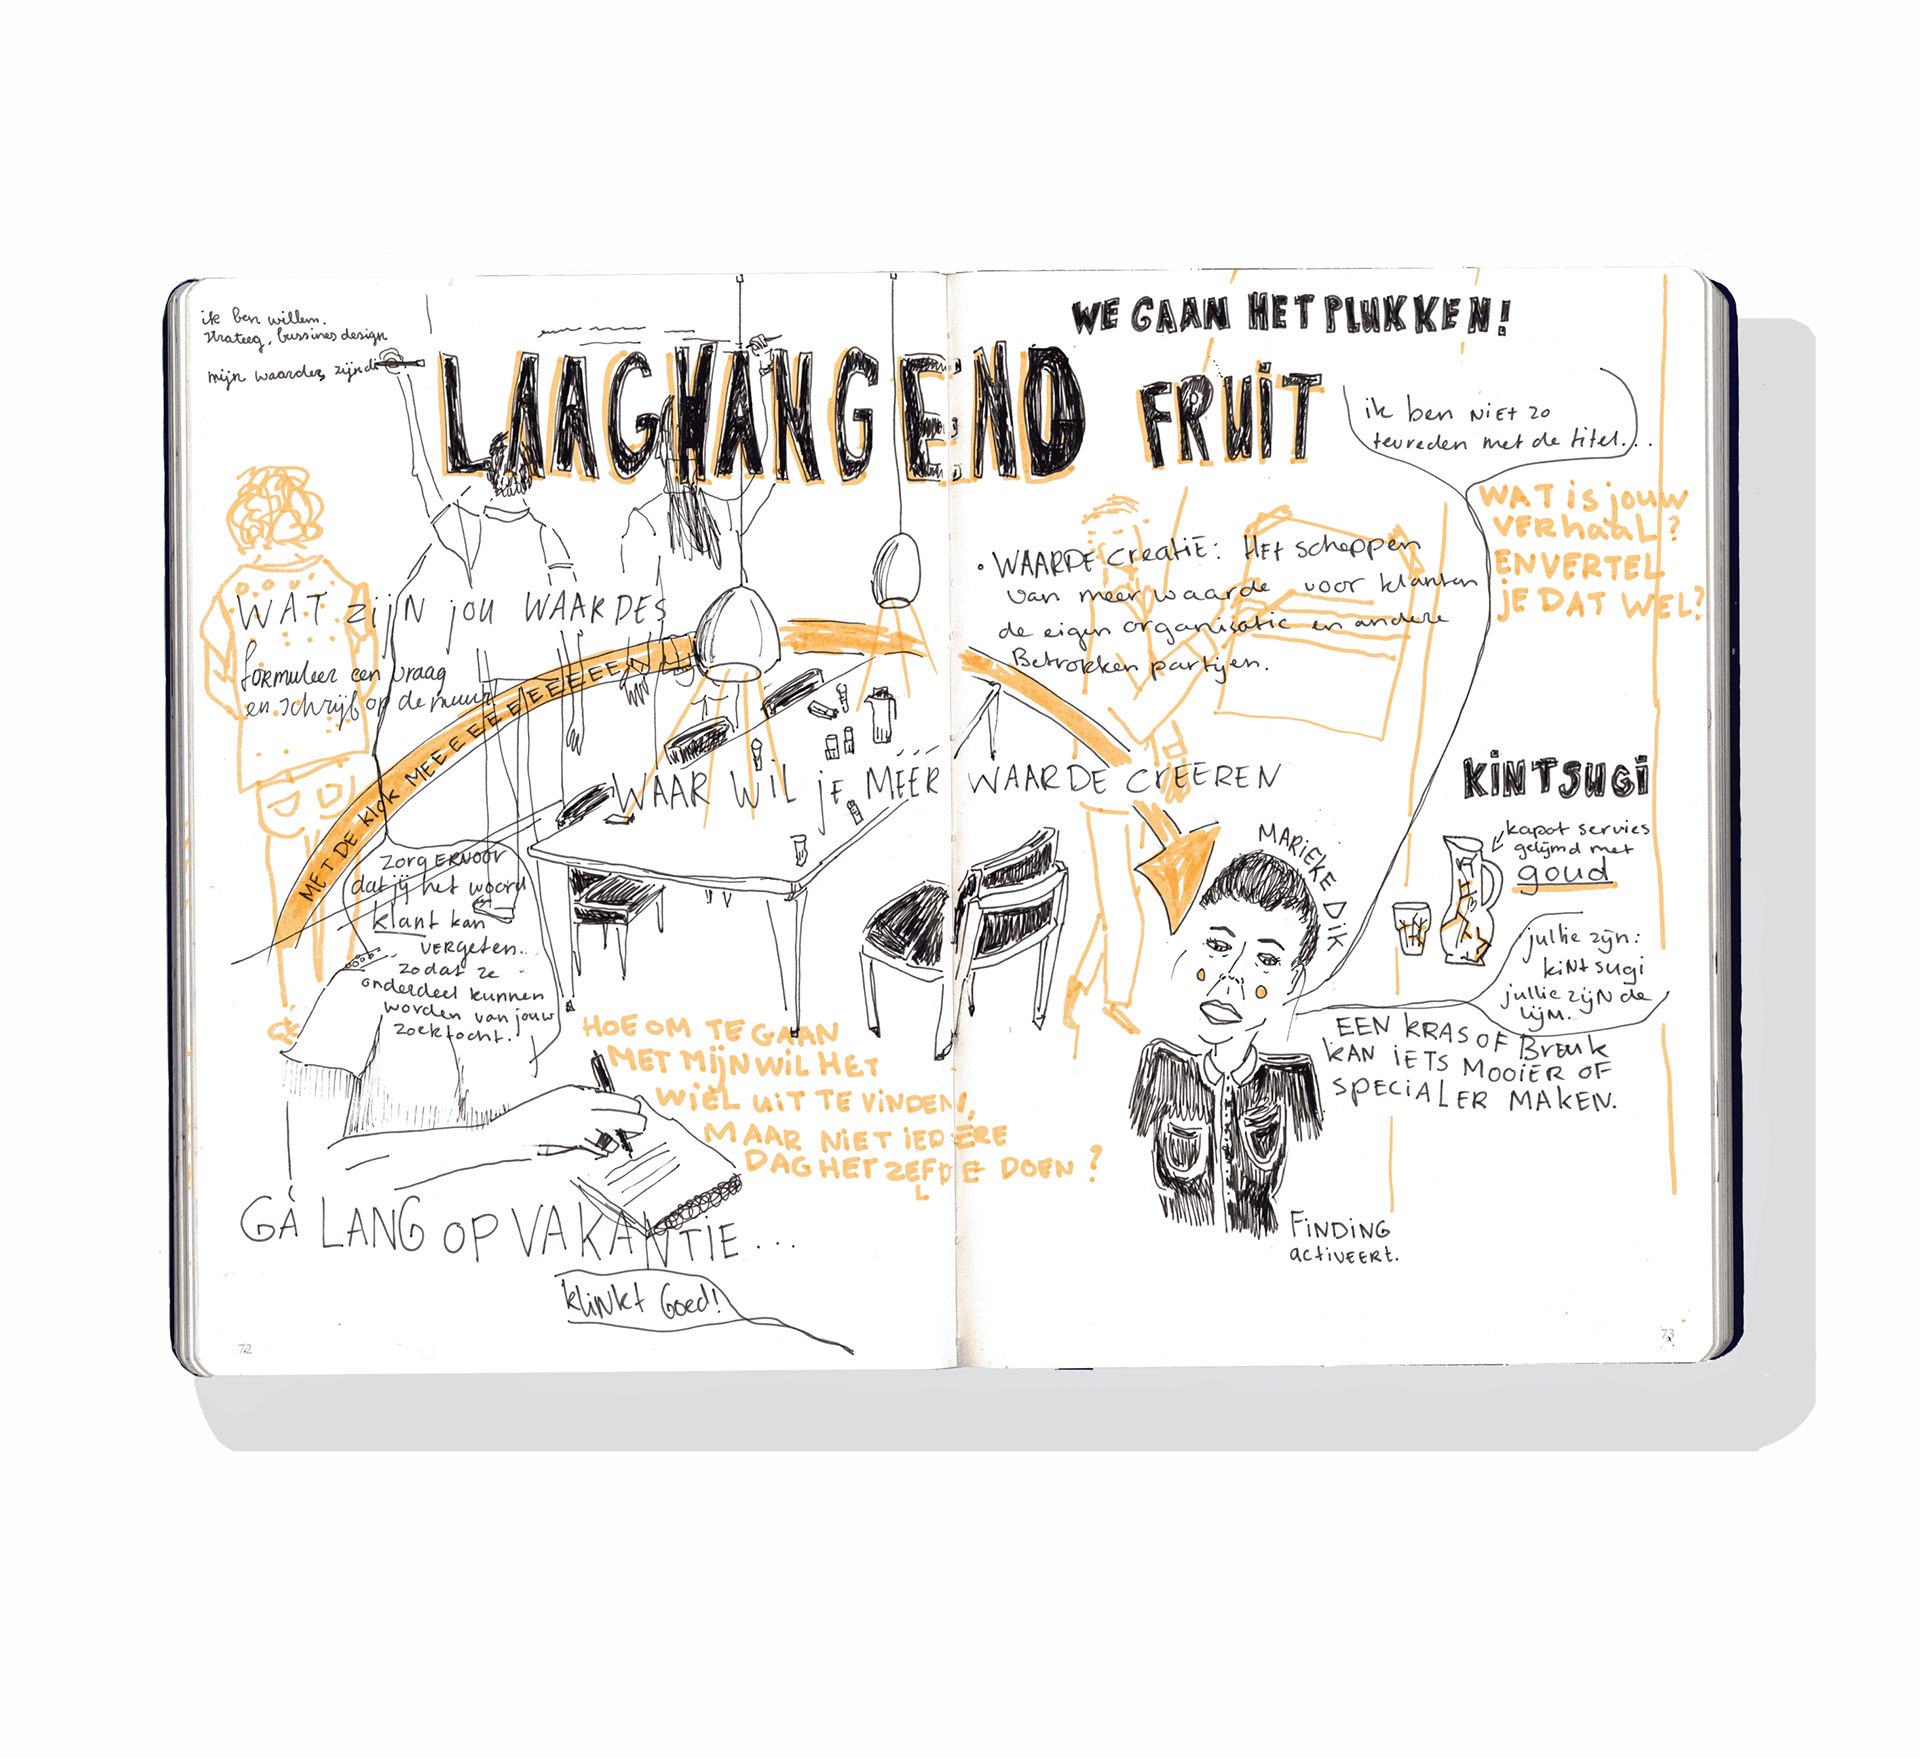 ik ben willem.
strateeg, bussines design
mijn waardes zijn
LAAGHANGEND FRUIT
WE GAAN HET PLUKKEN!
ik ben NIET zo
tevreden met de titel...
WAT is jouw
VERhaaL?
EN VERTEL
jE DAT WEL?
WAT zijN jou WAARDES
formuleer een vraag
en schrijf op de muur
MET DE KLOK MEEEEEEEEEEEEE
• WAARDE CreatiE: HEt scheppen
van meer waarde voor klanten
de eigen organisatie en andere
Betrokken partijen.
WAAR WiL jE MÉÉR WAARDE CrEËREN
KiNTSUGi
kapot servies
gelijmd met
goud
MARiEKE Dik
jullie zijn:
kiNtsugi
jullie zijN de
lijM.
EEN KRAS OF BrEuk
KAN iETS MOOiER OF
SpECiALER MAKEN.
zorg ERVOOR
dat jij het woord
klant kan
VERGETEN..
zodat ze
onderdeel kunnen
worden van jouw
zoektocht.
HOE OM TE GAAN
MET MijN WiL HET
WiEL UiT TE ViNDEN,
MAAR NiET iEDERE
DAG HET ZEFDE DOEN?
L
GÁ LANG OP VAKANTiE...
kliNkt Goed!
FiNDiNG
activEERt.
72
73